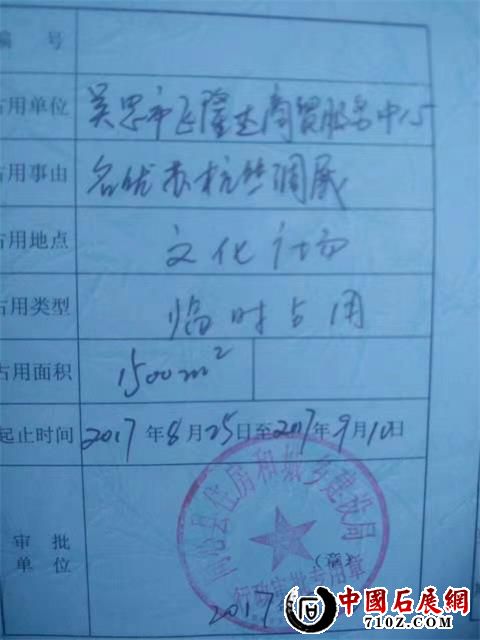 编 号
占用单位 吴忠市飞隆杰商贸服务中心
占用事由 名优苏杭丝绸展
占用地点 文化广场
占用类型 临时占用
占用面积 1500m²
起止时间 2017年8月25日至2017年9月10日
审 批
单 位
同心县住房和城乡建设局
行政审批专用章
(章)
2017
中國石展網
710Z.COM